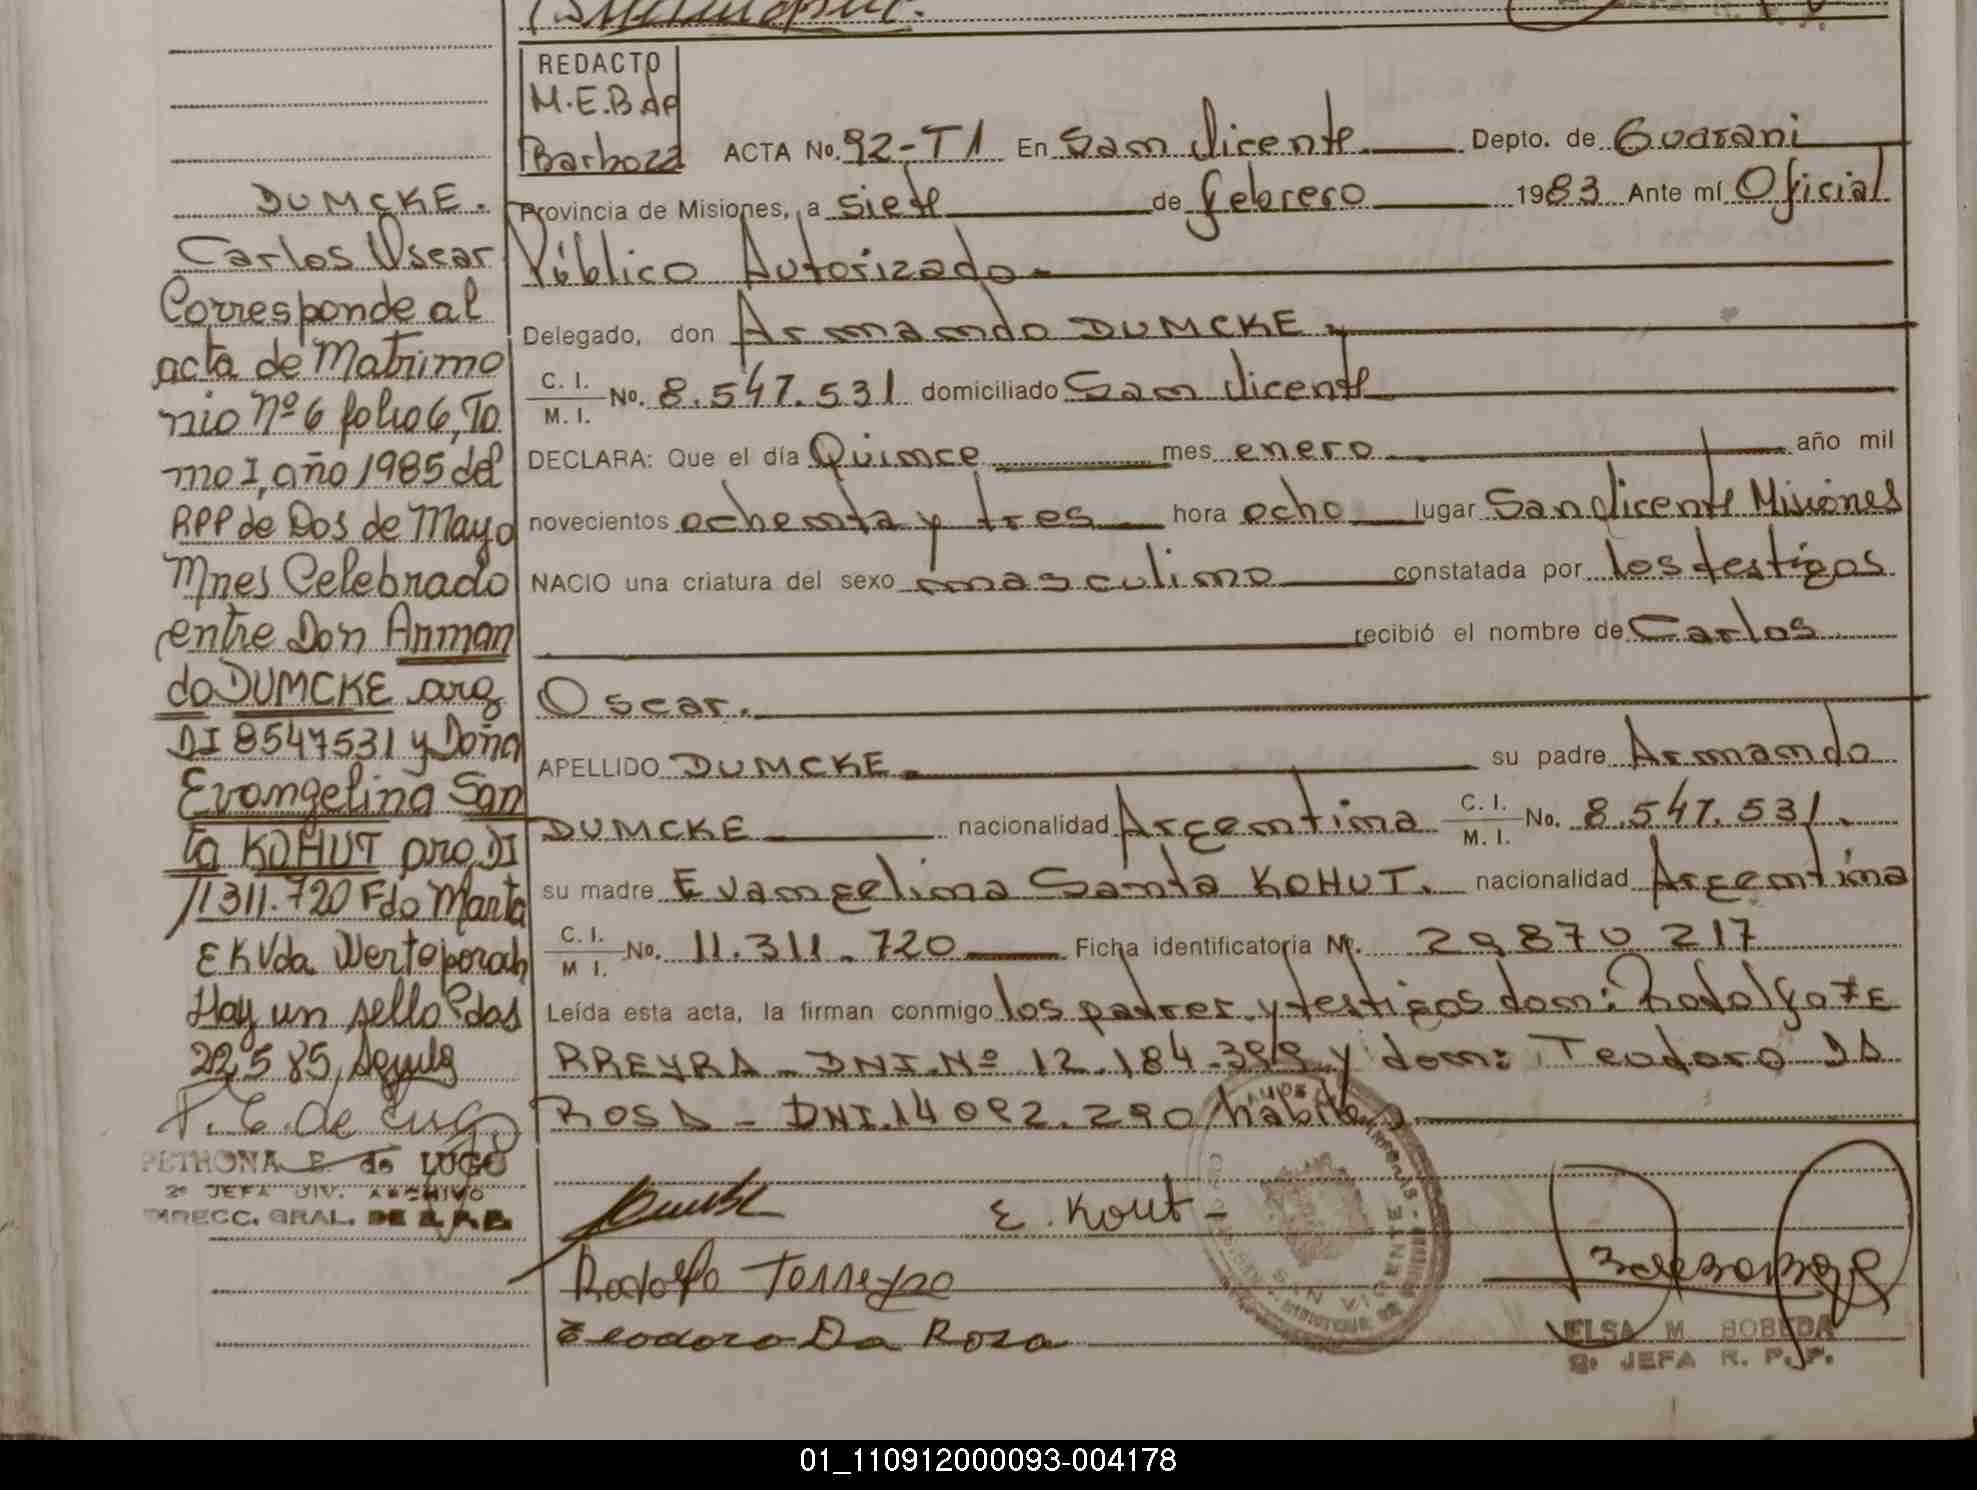 REDACTO
M.E.B de
Barboza
ACTA No. 92-T1 En San Vicente Depto. de Guarani
Provincia de Misiones, a siete de febrero 1983 Ante mí Oficial
Público Autorizado
Delegado, don Armando DUMCKE
C. I.
M. I. No. 8.547.531 domiciliado San Vicente
DECLARA: Que el día Quince mes enero año mil
novecientos ochenta y tres hora ocho lugar San Vicente Misiones
NACIO una criatura del sexo masculino constatada por los testigos
recibió el nombre de Carlos
Oscar.
APELLIDO DUMCKE su padre Armando
DUMCKE nacionalidad Argentina C. I. M. I. No. 8.547.531.
su madre Evangelina Santa KOHUT. nacionalidad Argentina
C. I. M I. No. 11.311.720 Ficha identificatoria Nº. 29870217
Leída esta acta, la firman conmigo los padres y testigos don: Rodolfo FE
RREYRA - DNI.Nº 12.184.399 y don: Teodoro DA
ROSA - DNI.14092.290 habiles
DUMCKE.
Carlos Oscar
Corresponde al
acta de Matrimo
nio Nº 6 folio 6, To
mo I, año 1985 del
RPP de Dos de Mayo
Mnes Celebrado
entre Don Arman
do DUMCKE arg
DI 8547531 y Doña
Evangelina San
ta KOHUT arg DI
11311.720 Fdo Marta
E K Vda Werteporah
Hay un sello Pdas
22,5 85,
P. E. de Lugo
PETRONA E. de LUGO
2º JEFA DIV. ARCHIVO
DIRECC. GRAL. DE R.P.P.
E. Kout
Rodolfo Ferreyra
Teodoro Da Rosa
SAN VICENTE
ELSA M BOBEDA
2º JEFA R. P. P.
01_110912000093-004178